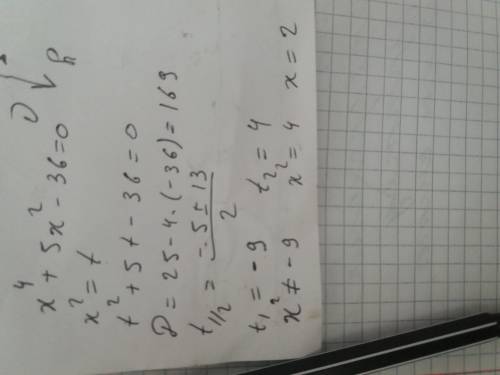 x⁴ + 5x² - 36 = 0
x² = t
t² + 5t - 36 = 0
D = 25 - 4·(-36) = 169
t₁/₂ = -5 ± 13 / 2
t₁ = -9 t₂ = 4
x² ≠ -9 x² = 4 x = 2